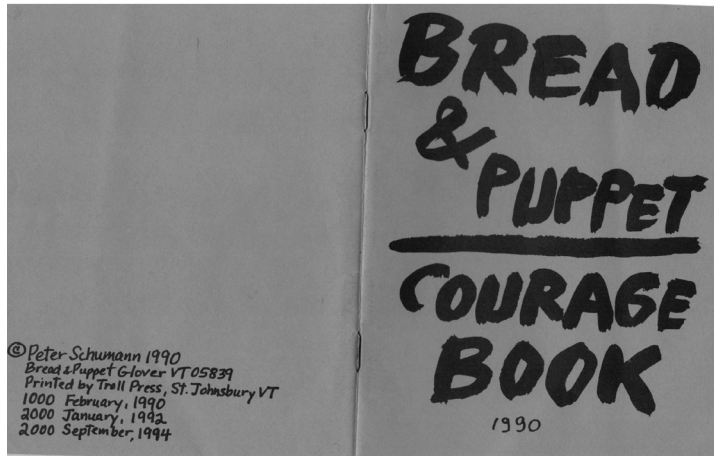 ©Peter Schumann 1990
Bread & Puppet Glover VT 05839
Printed by Troll Press, St. Johnsbury VT
1000 February, 1990
2000 January, 1992
2000 September, 1994
BREAD
&
PUPPET
COURAGE
BOOK
1990